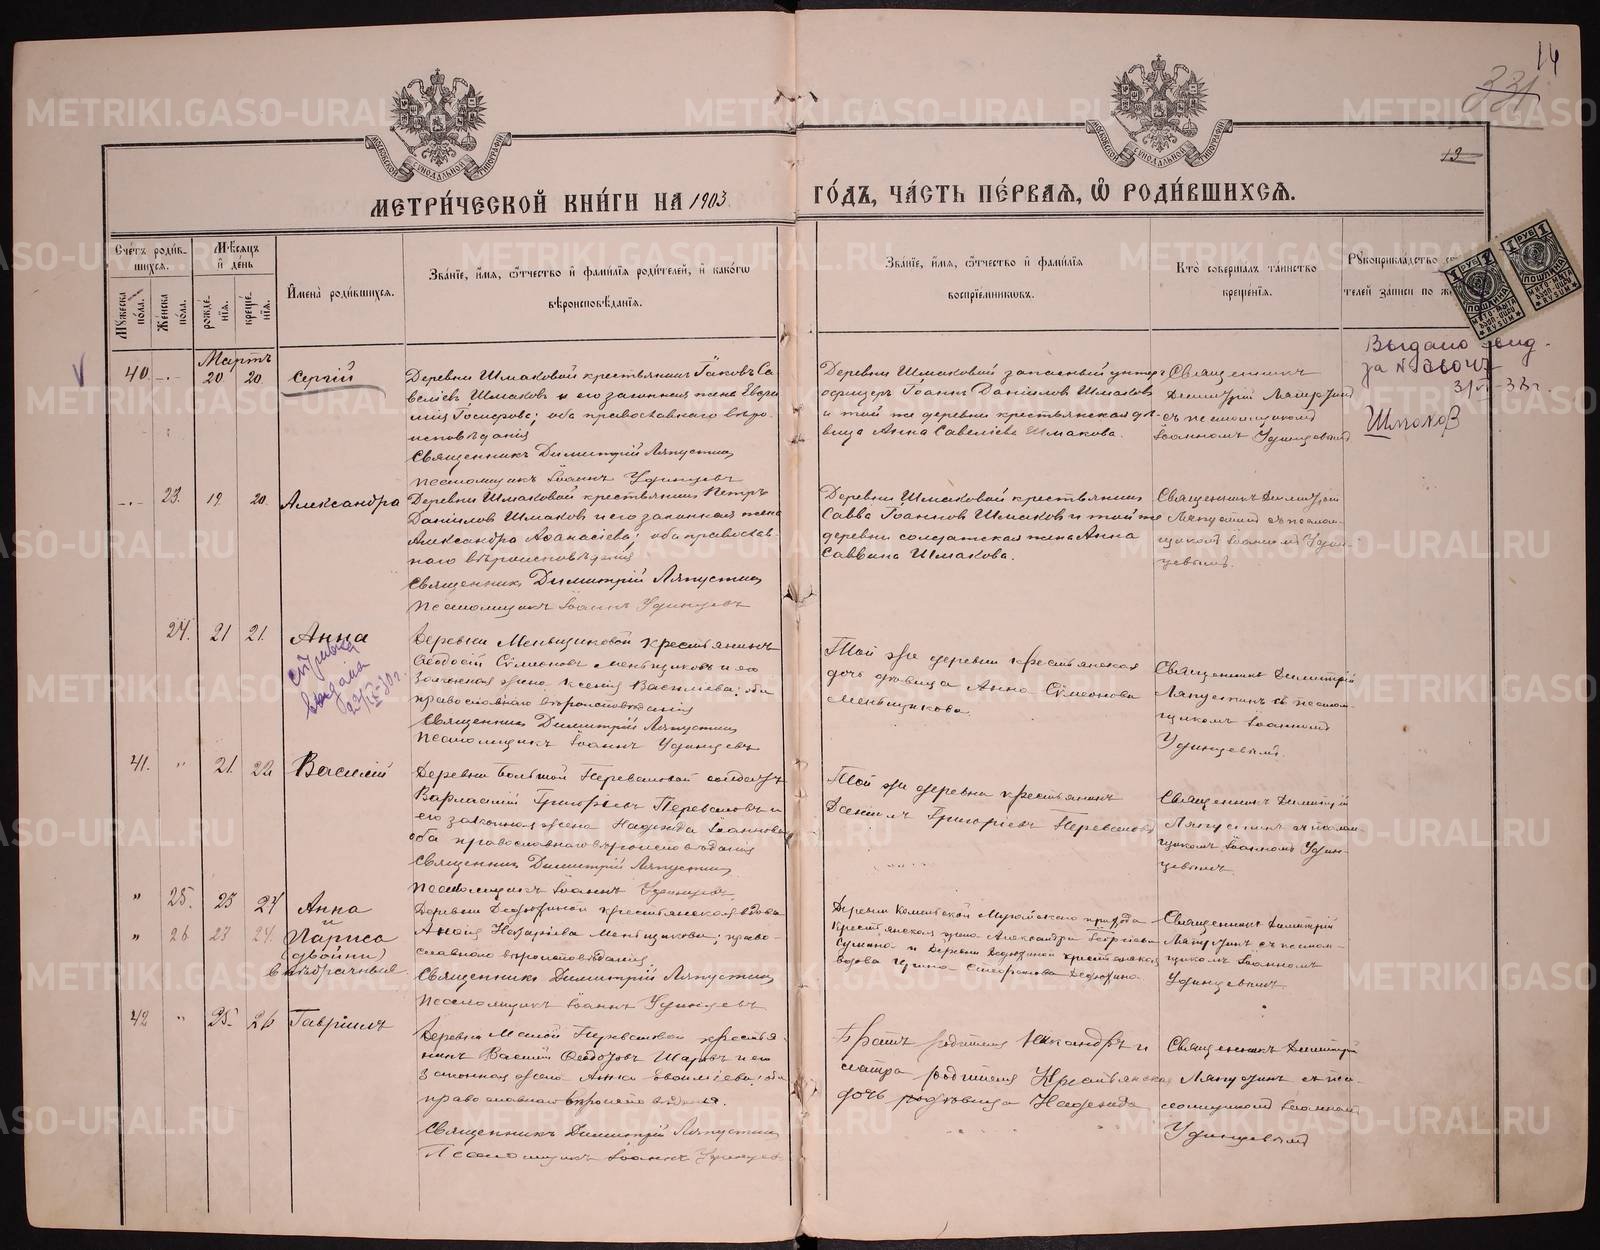 14
331
13
МЕТРИ́ЧЕСКОЙ КНИ́ГИ НА 1903 ГО́ДЪ, ЧА́СТЬ ПЕ́РВАЯ, Ѡ РОДИ́ВШИХСЯ.
Счетъ роди́в-
шихся.
Мꙋжеска
по́ла.
Же́нска
по́ла.
Мѣсяцъ
и де́нь
рожде́-
нїя.
креще́-
нїя.
И҆мена̀ роди́вшихся.
Зва́нїе, и҆́мя, ѻ҆́тчество и҆ фами́лїѧ роди́телей, и҆ како́гѡ
вѣроисповѣ́данїѧ.
Зва́нїе, и҆́мя, ѻ҆́тчество и҆ фами́лїѧ
воспрїе́мниковъ.
Кто̀ соверша́лъ та́инство
креще́нїѧ.
Рꙋкоприкла́дство
телей за́писи по
1 РУБ 1
ПОШЛИНА
1 РУБ 1
ПОШЛИНА
Мартъ
40 20 20. Сергій
Деревни Шмаковой крестьянинъ Іаковъ Са
веліевъ Шмаковъ и его законная жена Евфи
мія оба православнаго вѣро-
исповѣданія
Священникъ Димитрій Ляпустинъ
Псаломщикъ Іоаннъ Удинцевъ
Деревни Шмаковой запасный унтеръ
офицеръ Іоаннъ Даніиловъ Шмаковъ
и той же деревни крестьянская дѣ-
вица Анна Савеліева Шмакова.
Священникъ
Димитрій Ляпустинъ
съ псаломщикомъ
Іоанномъ Удинцевымъ
Выдано свид.
за №
Шмаков
23. 19 20. Александра
Деревни Шмаковой крестьянинъ Петръ
Даніиловъ Шмаковъ и его законная жена
Александра Аѳанасіева; оба православ-
наго вѣроисповѣданія
Священникъ Димитрій Ляпустинъ
Псаломщикъ Іоаннъ Удинцевъ
Деревни Шмаковой крестьянинъ
Савва Іоанновъ Шмаковъ и той же
деревни солдатская жена Анна
Саввина Шмакова.
Священникъ Димитрій
Ляпустинъ съ псалом-
щикомъ Іоанномъ Удин-
цевымъ.
24. 21 21. Анна
выдана
23/IX-30 г.
Деревни Меньщиковой крестьянинъ
Ѳеодосій Сѷмеоновъ Меньщиковъ и его
законная жена Ксенія Василіева; оба
православнаго вѣроисповѣданія
Священникъ Димитрій Ляпустинъ
Псаломщикъ Іоаннъ Удинцевъ
Той же деревни крестьянская
дочь дѣвица Анна Сѷмеонова
Меньщикова.
Священникъ Димитрій
Ляпустинъ съ псалом-
щикомъ Іоанномъ
Удинцевымъ.
41. " 21. 22 Василій
Деревни Большой Переваловой солдатъ
Варлаамій Григоріевъ Переваловъ и
его законная жена Надежда Іоаннова
оба православнаго вѣроисповѣданія
Священникъ Димитрій Ляпустинъ
Псаломщикъ Іоаннъ Удинцевъ
Той же деревни крестьянинъ
Даніилъ Григоріевъ Переваловъ
Священникъ Димитрій
Ляпустинъ съ псалом-
щикомъ Іоанномъ Удин-
цевымъ.
" 25. 23 24 Анна
и
" 26 23 24. Лариса
(двойни)
внѣбрачныя
Деревни Дедюхиной крестьянская вдова
Назаріева Меньщикова; право-
славнаго вѣроисповѣданія.
Священникъ Димитрій Ляпустинъ
Псаломщикъ Іоаннъ Удинцевъ
Деревни прихода
крестьянская жена Александра Георгіева
и деревни Дедюхиной крестьянская
вдова Ирина Стефанова Дедюхина
Священникъ Димитрій
Ляпустинъ съ псалом-
щикомъ Іоанномъ
Удинцевымъ
42 " 25. 26 Гавріилъ
Деревни Малой Переваловой крестья-
нинъ Василій Ѳеодотовъ Шаровъ и его
законная жена Анна оба
православнаго вѣроисповѣданія.
Священникъ Димитрій Ляпустинъ
Псаломщикъ Іоаннъ Удинцевъ
Братъ родителя Никандръ и
сестра родителя крестьянская
дочь дѣвица Надежда
Священникъ Димитрій
Ляпустинъ съ пса-
ломщикомъ Іоанномъ
Удинцевымъ
METRIKI.GASO-URAL.RU